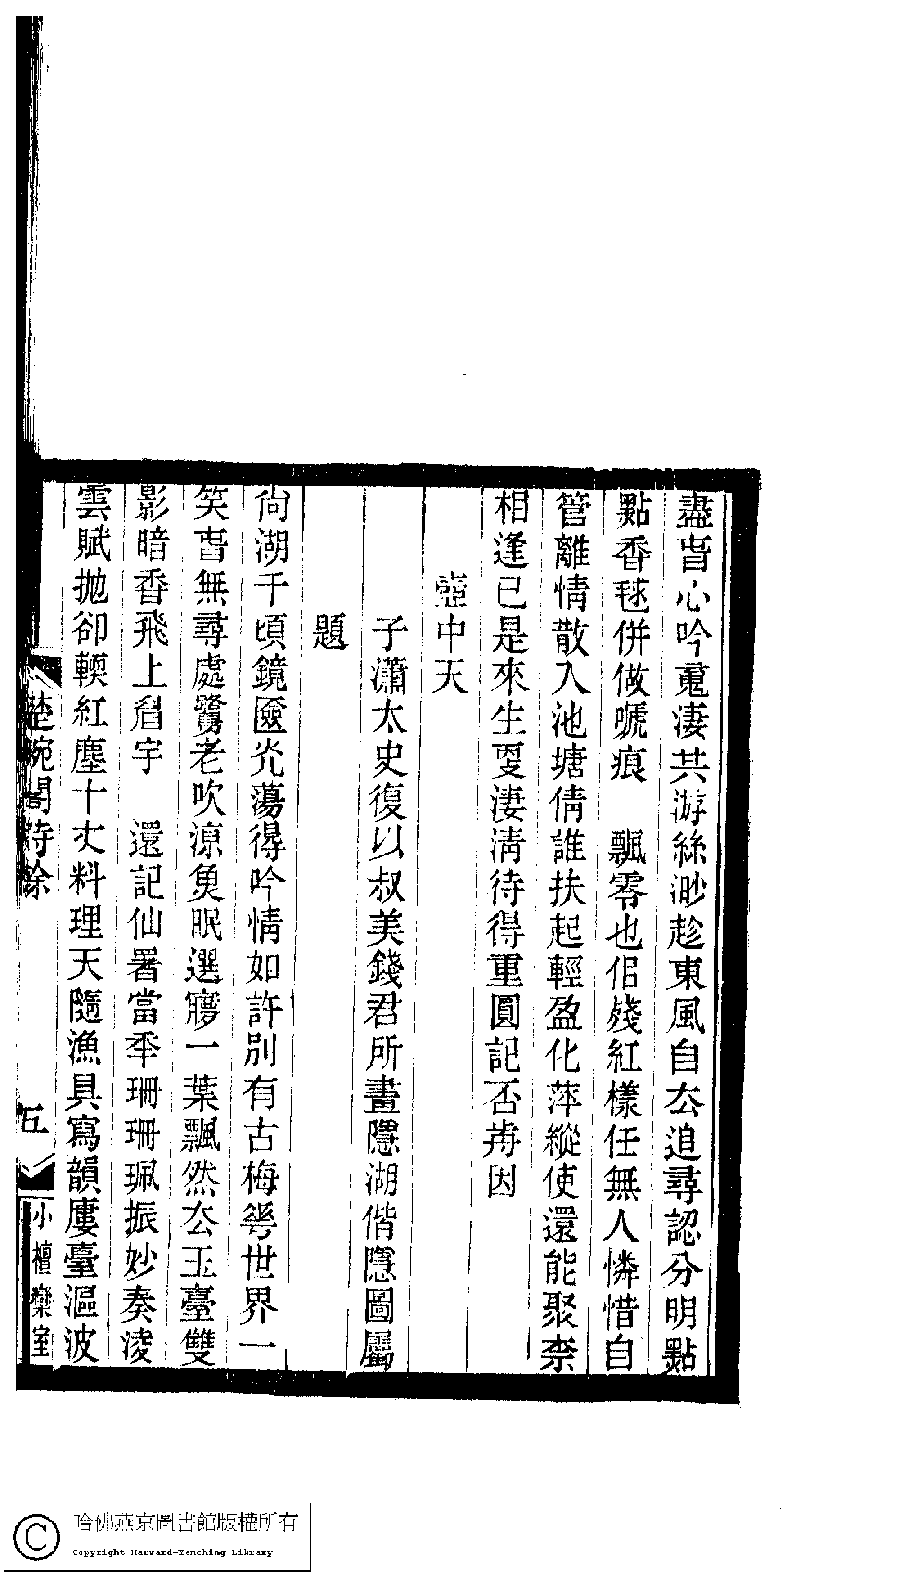 盡旾心吟䰟淒共游絲渺趁東風自厺追尋認分明點
點香毬併做嗁痕　飄零也侣殘紅樣任無人憐惜自
管離情散入池塘倩誰扶起輕盈化萍縱使還能聚柰
相逢已是來生叓淒清待得重圓記否歬因
壺中天
子瀟太史復以叔美錢君所畫隱湖偕隱圖屬
題
尙湖千頃鏡匳光蕩得吟情如許別有古梅𠌶世界一
笑旾無尋處鷖老吹涼魚眠選㝱一葉飄然厺玉臺雙
影暗香飛上眉宇　還記仙署當秊珊珊珮振妙奏淩
雲賦拋卻輭紅塵十丈料理天隨漁具寫韻廔臺漚波
楚畹閣詩餘
五
小檀欒室
哈佛燕京圖書館版權所有
Copyright Harvard-Yenching Library